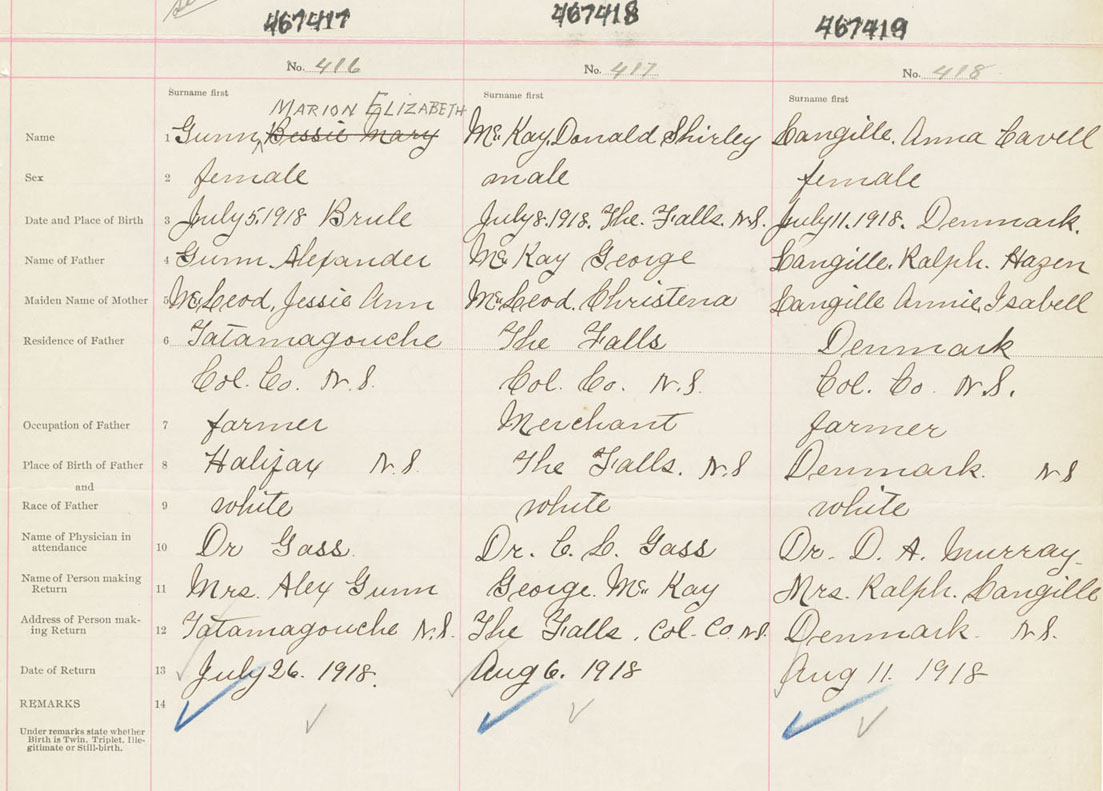 467417 467418 467419
No. 416 No. 417 No. 418
Surname first Surname first Surname first
MARION ELIZABETH
Name 1 Gunn, Bessie Mary Mc Kay, Donald Shirley Langille, Anna Cavell
Sex 2 female male female
Date and Place of Birth 3 July 5. 1918 Brule July 8. 1918. The Falls. N.S. July 11. 1918. Denmark.
Name of Father 4 Gunn. Alexander Mc Kay George Langille. Ralph. Hazen
Maiden Name of Mother 5 McLeod, Jessie Ann McLeod. Christena Langille Annie, Isabell
Residence of Father 6 Tatamagouche The Falls Denmark
Col. Co. N.S. Col. Co. N.S. Col. Co N.S.
Occupation of Father 7 farmer Merchant farmer
Place of Birth of Father 8 Halifax N.S. The Falls. N.S Denmark. N S
and
Race of Father 9 white white white
Name of Physician in
attendance 10 Dr Gass. Dr. C. L. Gass Dr. D. A. Murray.
Name of Person making
Return 11 Mrs. Alex Gunn George. Mc Kay Mrs. Ralph. Langille
Address of Person mak-
ing Return 12 Tatamagouche N.S. The Falls, Col. Co N.S. Denmark. N.S.
Date of Return 13 July 26. 1918. Aug 6. 1918 Aug 11. 1918
REMARKS 14
Under remarks state whether
Birth is Twin, Triplet, Ille-
gitimate or Still-birth.